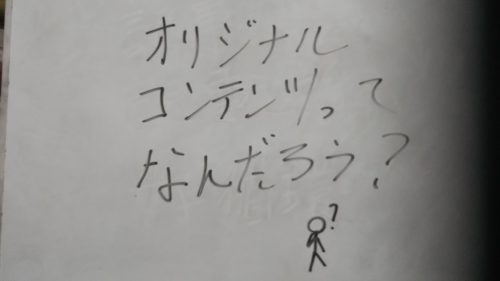 オリジナル
コンテンツって
なんだろう?
?